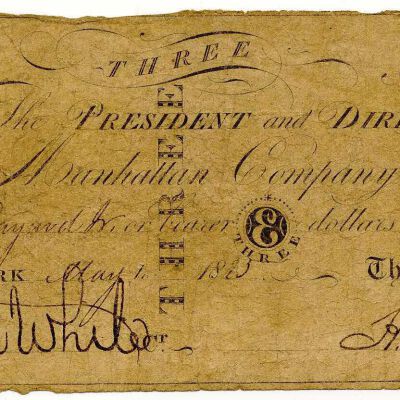 THREE
The PRESIDENT and DIRE
Manhattan Company
or bearer 3 dollars
THREE
THREE
RK May 1 18 Th
White CT. H.